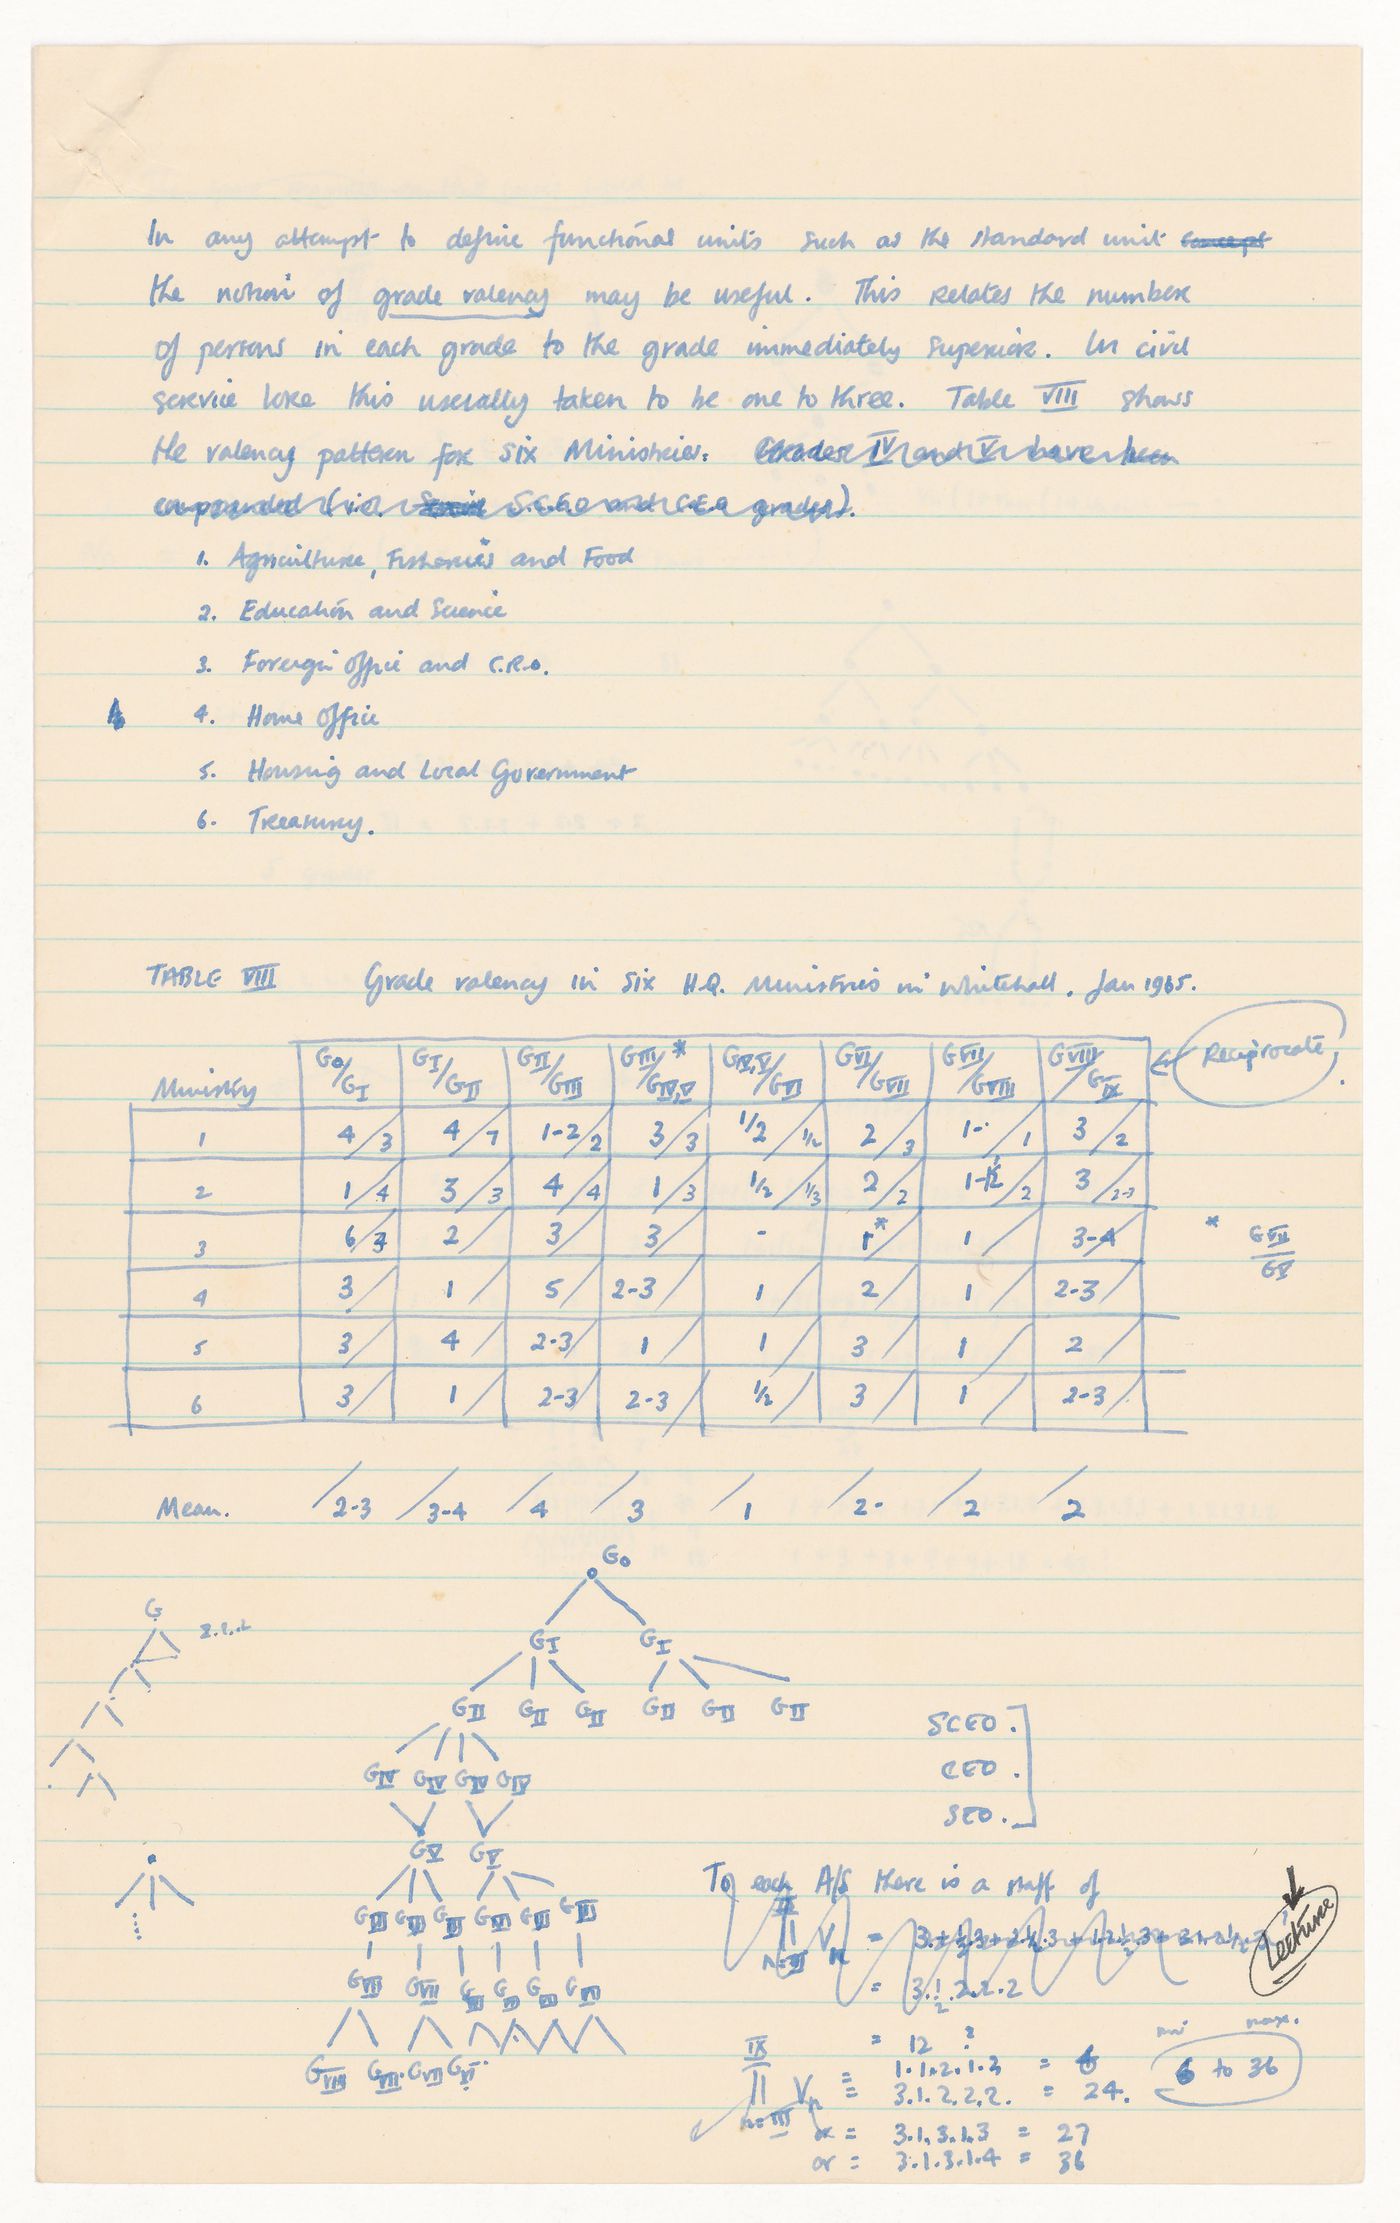 In any attempt to define functional units such as the standard unit concept
the notion of grade valency may be useful. This relates the number
of persons in each grade to the grade immediately superior. In civil
service lore this usually taken to be one to three. Table VIII shows
the valency pattern for six Ministries. Grades IV and V have been
compounded (i.e. S.C.E.O and C.E.O grades).
1. Agriculture, Fisheries and Food
2. Education and Science
3. Foreign Office and C.R.O.
4. Home Office
5. Housing and Local Government
6. Treasury.
TABLE VIII Grade valency in six H.Q. Ministries in Whitehall. Jan 1965.
Reciprocate
Ministry G0/GI GI/GII GII/GIII GIII/GIV,V * GIV,V/GVI GVI/GVII GVII/GVIII GVIII/GIX
1 4/3 4/7 1-2/2 3/3 1/2 / 1/2 2/3 1-/1 3/2
2 1/4 3/3 4/4 1/3 1/2 / 1/3 2/2 1-/2 3/2-3
3 6/ 2/ 3/ 3/ - 1*/ 1/ 3-4/
* GVII/GV
4 3/ 1/ 5/ 2-3/ 1/ 2/ 1/ 2-3/
5 3/ 4/ 2-3/ 1/ 1/ 3/ 1/ 2/
6 3/ 1/ 2-3/ 2-3/ 1/2 / 3/ 1/ 2-3/
Mean. /2-3 /3-4 /4 /3 /1 /2- /2 /2
G0
G
GI GI
GII GII GII GII GII GII
SCEO.
GIV GIV GIV GIV
CEO.
SEO.
GV GV
To each A/S there is a staff of
Lecture
= 3.½.2.2.2
= 12 ?
min max.
6 to 36
IX
Π Vn = 1.1.2.1.3 = 6
n=III = 3.1.2.2.2. = 24.
or = 3.1.3.1.3 = 27
or = 3.1.3.1.4 = 36